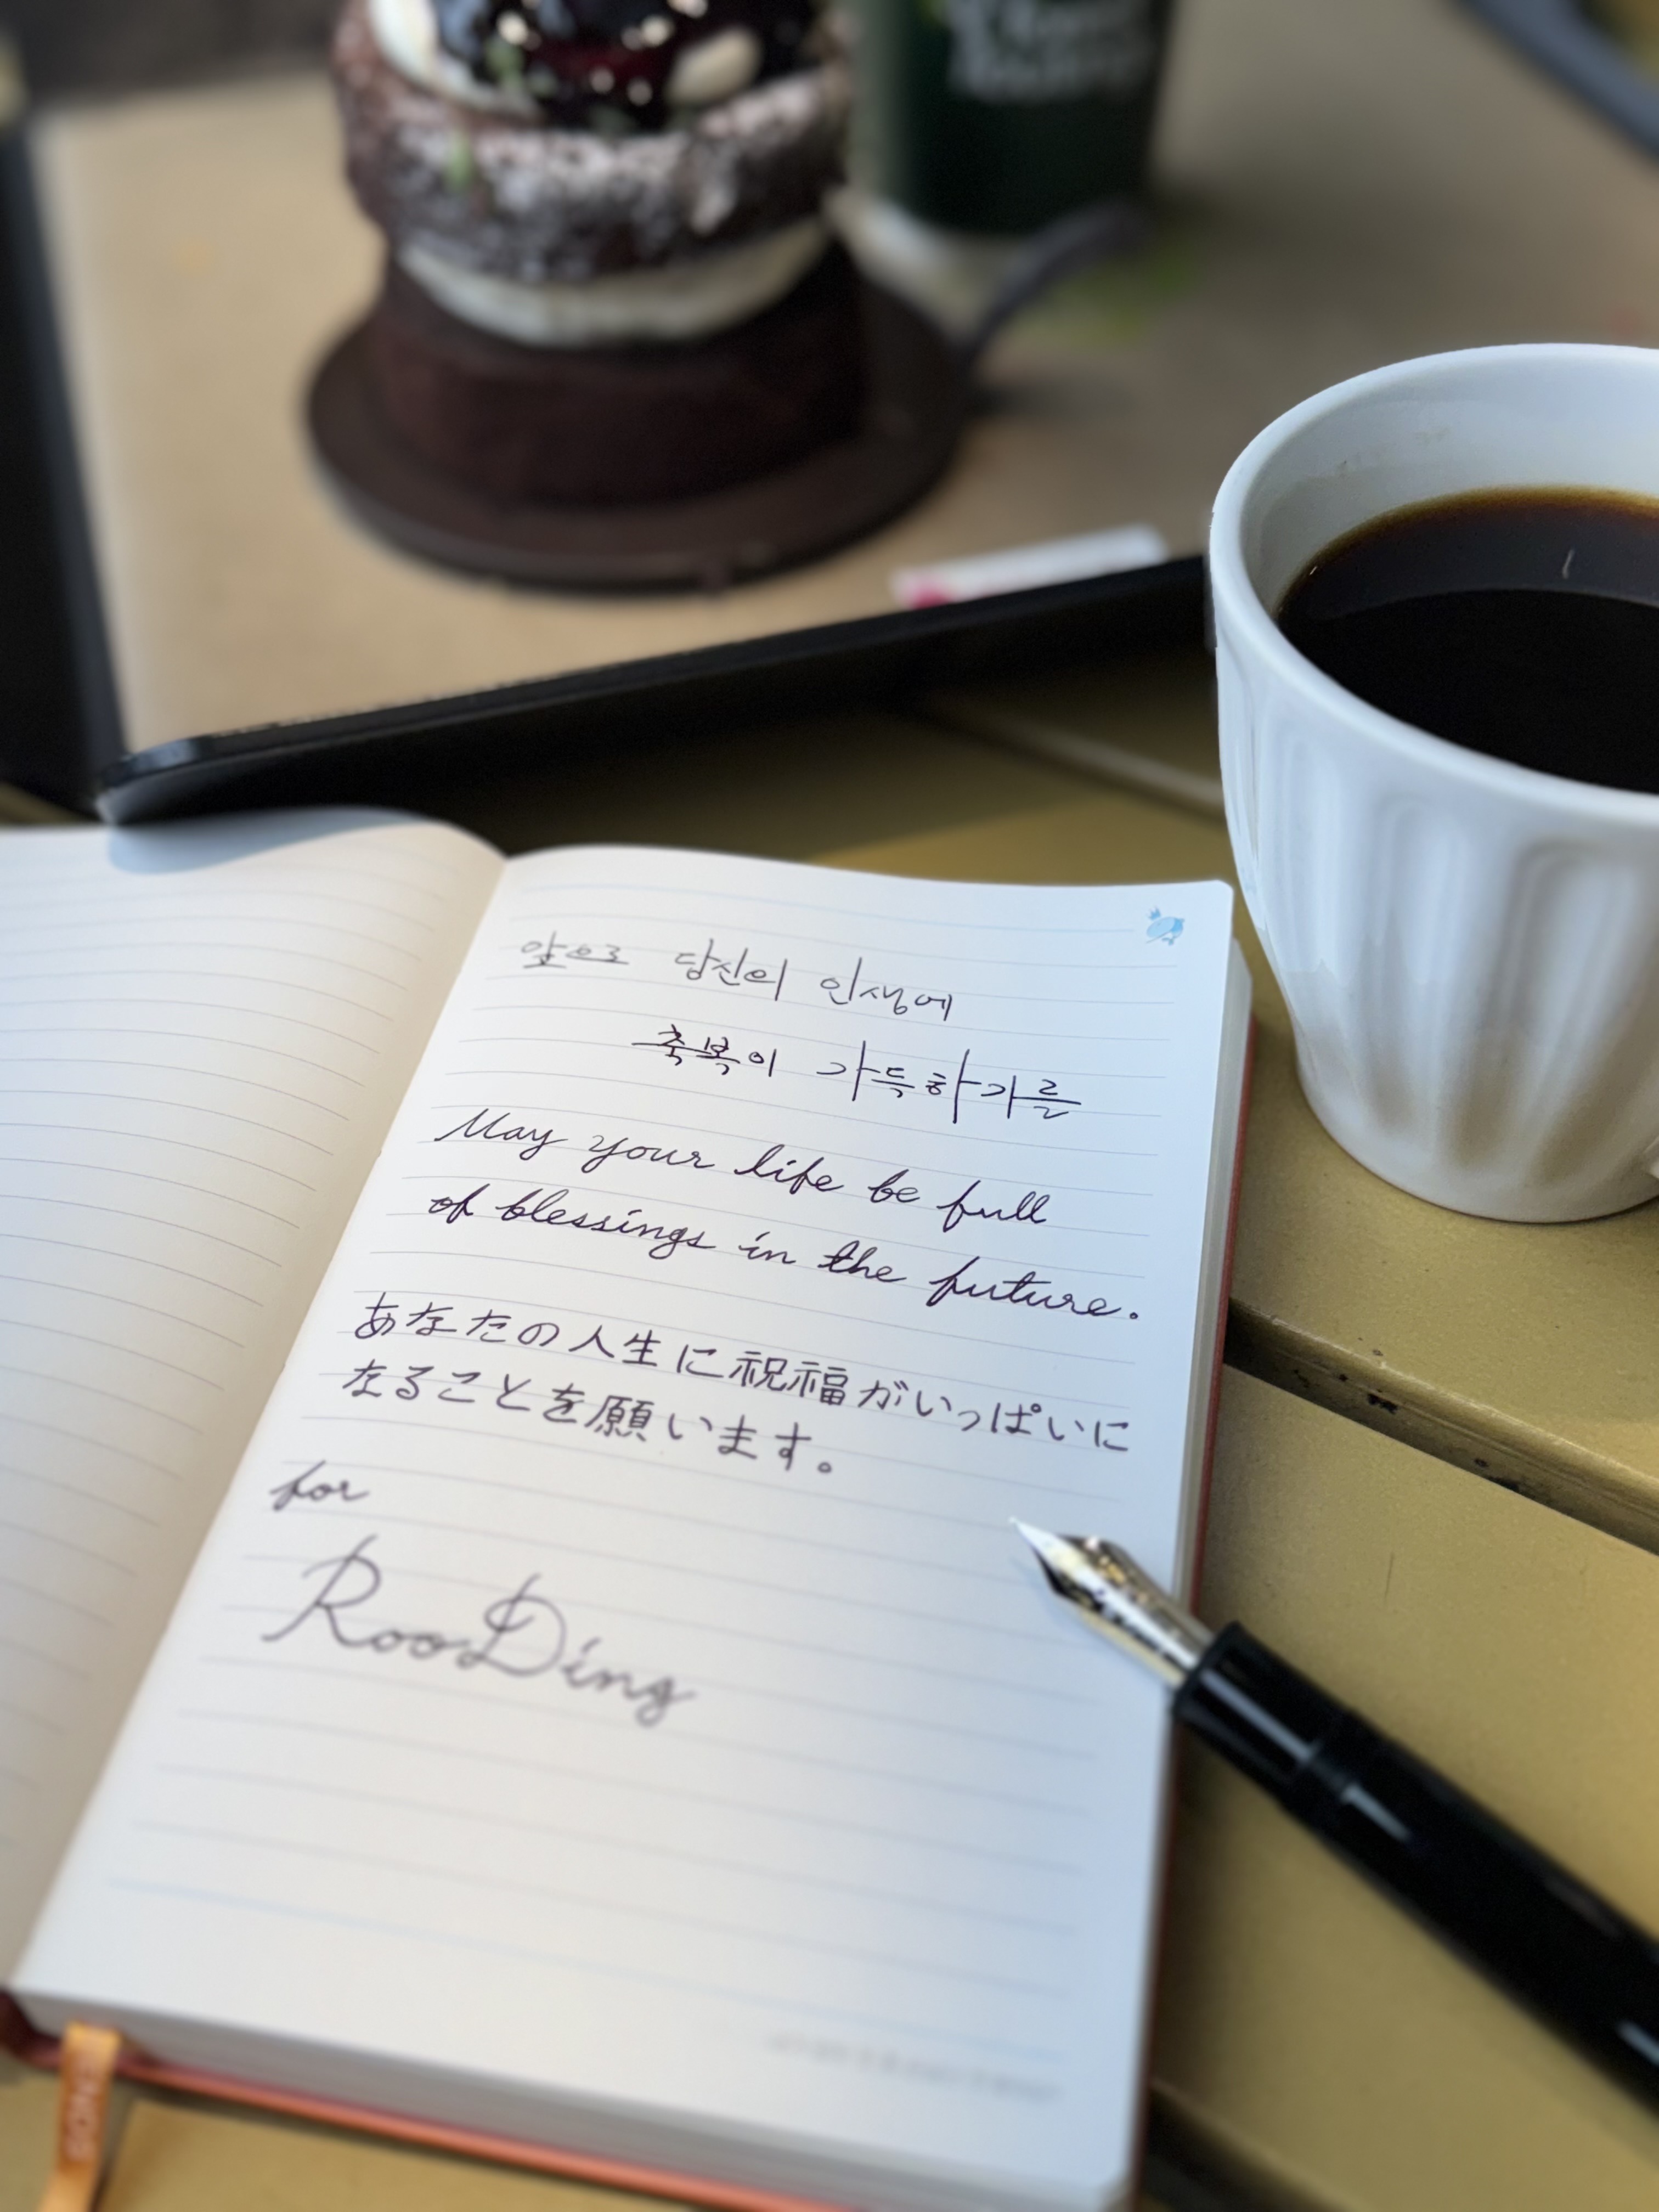 앞으로 당신의 인생에
축복이 가득하기를
May your life be full
of blessings in the future.
あなたの人生に祝福がいっぱいに
なることを願います。
for
RooDing